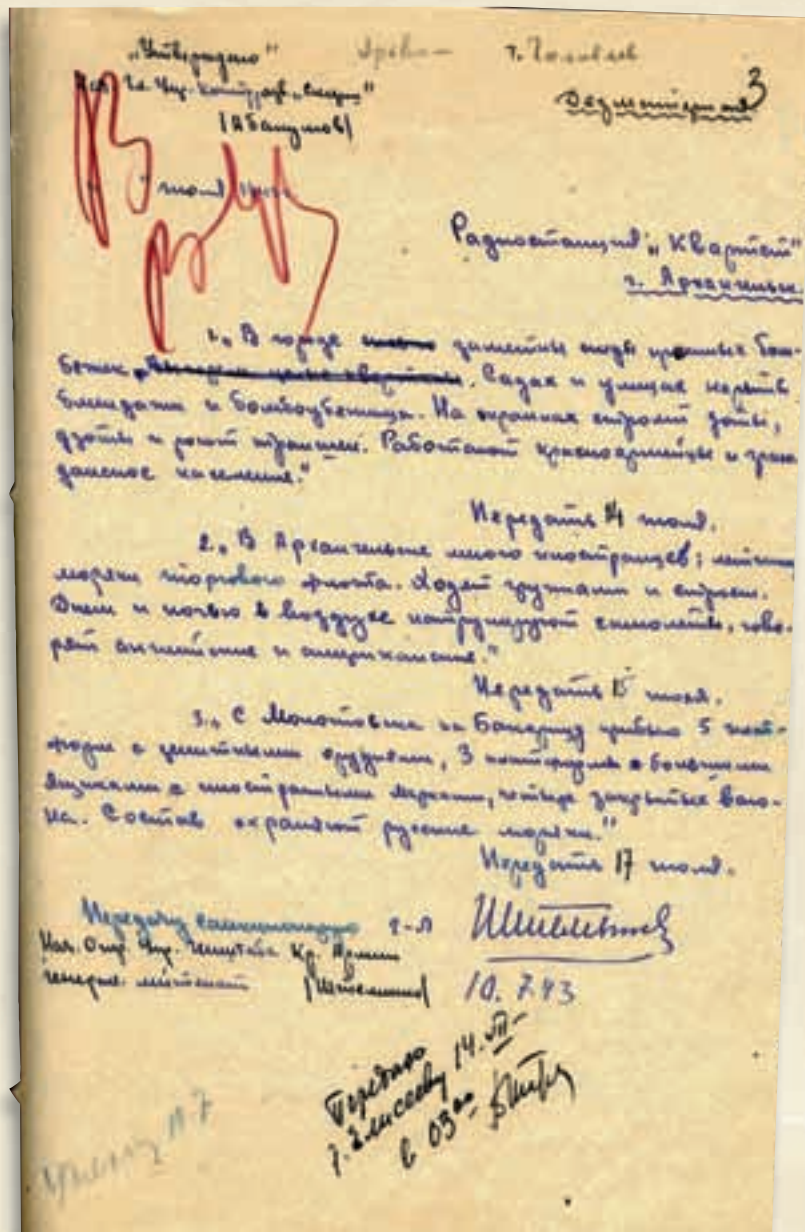 „Утверждаю"
Нач. Гл. Упр. Контрразв. „Смерш"
/Абакумов/
июля
3
Дезматериал
Радиостанция „Квартет"
г. Архангельск.
1. „В городе заметны следы бом-
бежек. Садах и улицах нарыты
блиндажи и бомбоубежища. На окраинах строят доты,
дзоты и роют траншеи. Работают красноармейцы и граж
данское население."
Передать 14 июля.
2. „В Архангельске много иностранцев:
моряки торгового флота. Ходят группами и строем.
Днем и ночью в воздухе патрулируют самолеты, гово-
рят английские и американские."
Передать 15 июля.
3. „С Молотовска на Бакарицу прибыло 5 плат-
форм с зенитными орудиями, 3 платформы с большими
ящиками с иностранными марками, четыре закрытые ваго-
на. Состав охраняют русские моряки."
Передать 17 июля.
Передачу санкционирую г-л
Нач. Опер. Упр. Генштаба Кр. Армии
генерал-лейтенант /Штеменко/
10.7.43
Передано
т. Елисееву 14.VII-
в 03⁰⁰